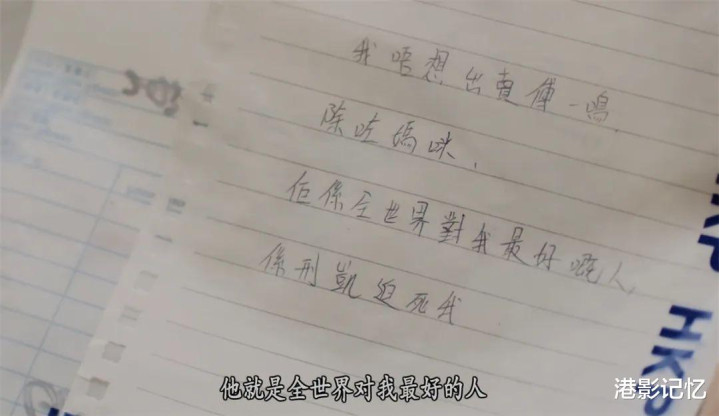 我唔想出賣傅一鳴
除咗媽咪、
佢係全世界對我最好嘅人
係刑凱迫死我
HKP
HKP
他就是全世界对我最好的人
港影记忆